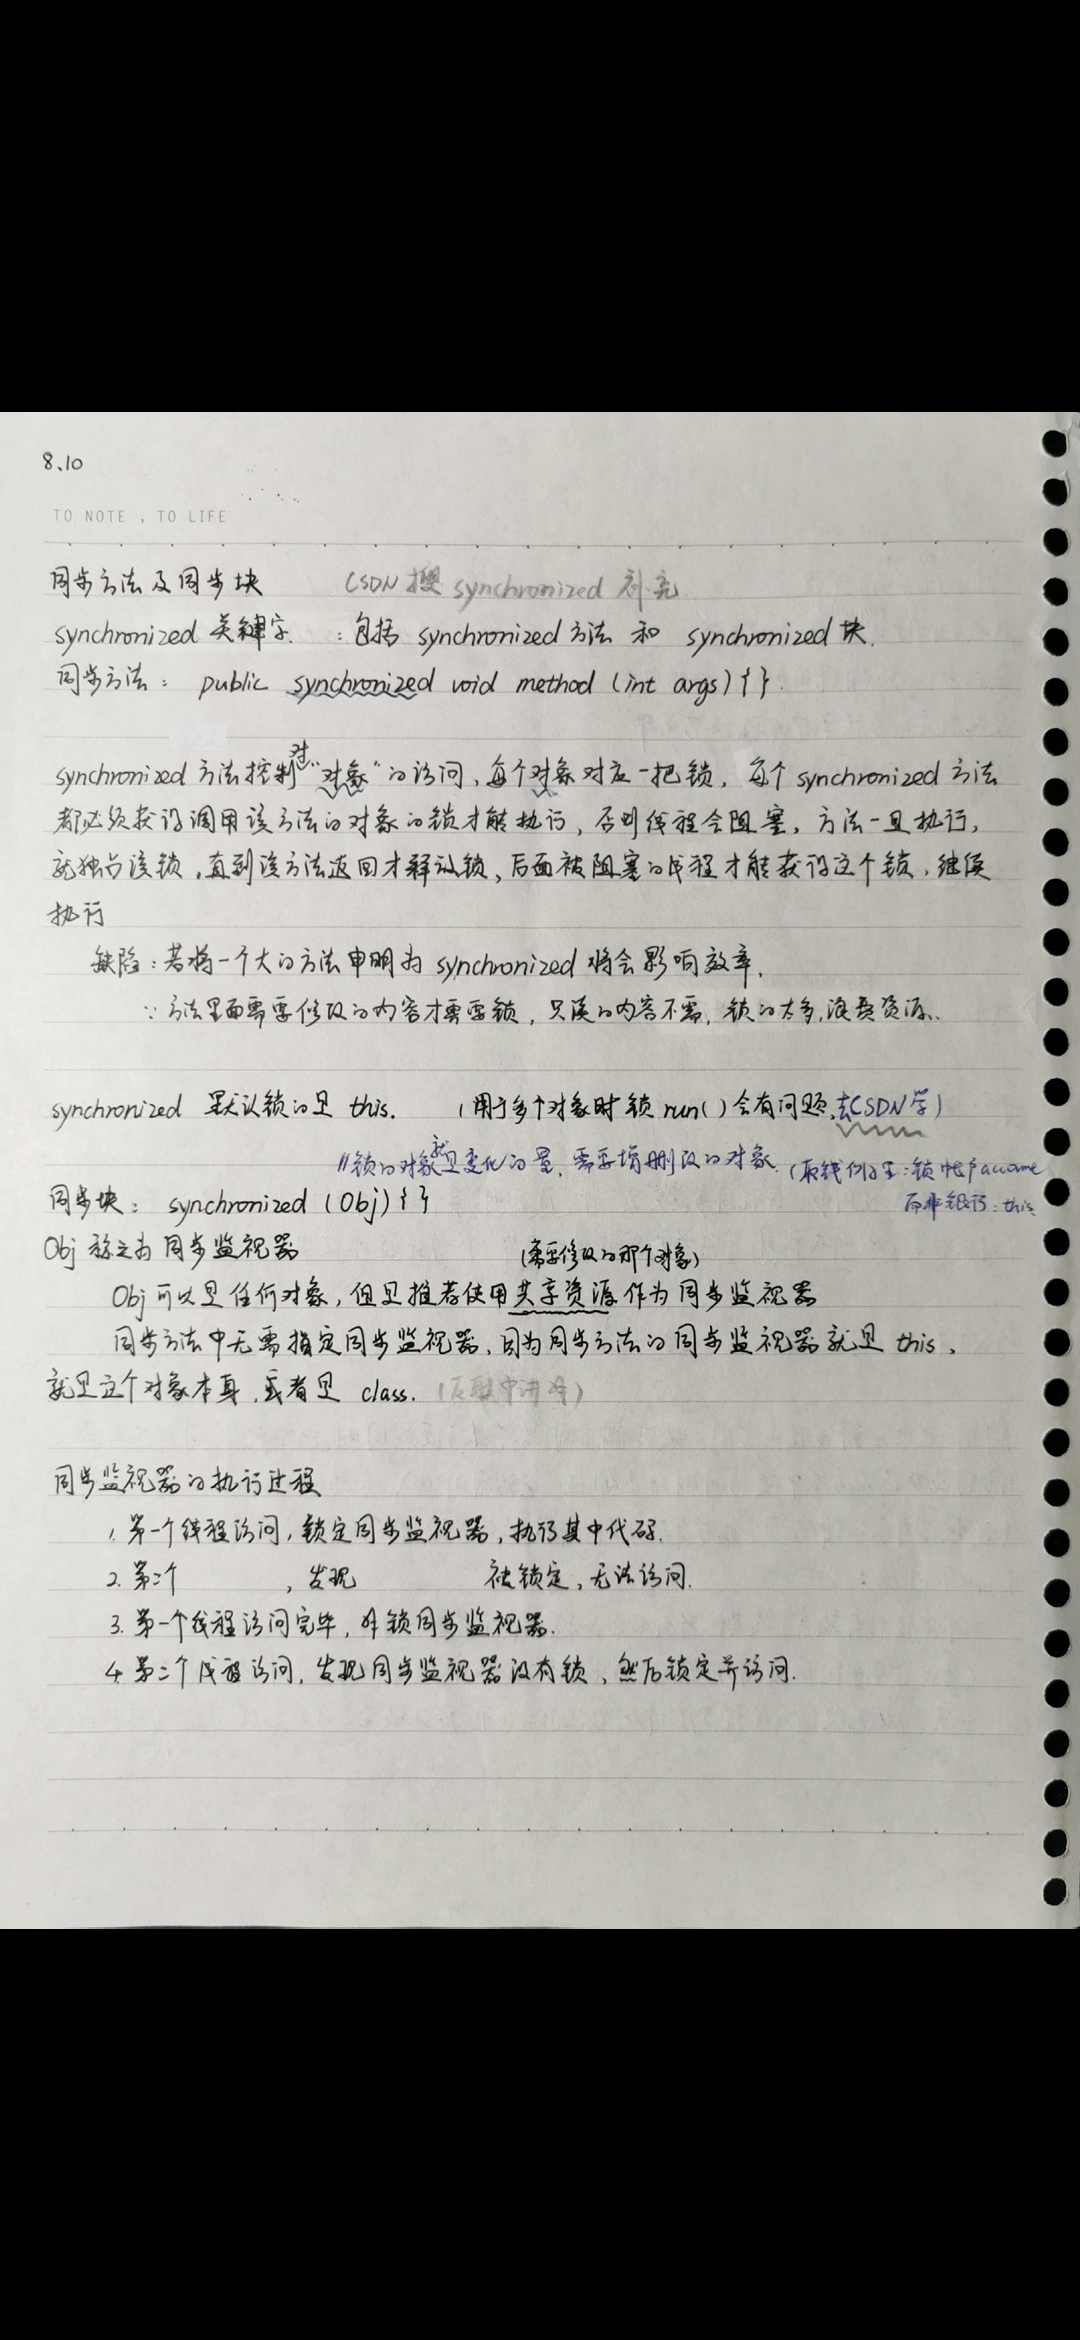 8.10
TO NOTE , TO LIFE
同步方法及同步块 CSDN 搜 synchronized 补充
synchronized 关键字 : 包括 synchronized 方法 和 synchronized 块.
同步方法: public synchronized void method (int args) { }.
synchronized 方法控制对“对象”的访问, 每个对象对应一把锁, 每个 synchronized 方法
都必须获得调用该方法的对象的锁才能执行, 否则线程会阻塞, 方法一旦执行,
就独占该锁, 直到该方法返回才释放锁, 后面被阻塞的线程才能获得这个锁, 继续
执行
缺陷: 若将一个大的方法申明为 synchronized 将会影响效率.
∵ 方法里面需要修改的内容才需要锁, 只读的内容不需, 锁的太多, 浪费资源.
synchronized 默认锁的是 this. (用于多个对象时锁 run() 会有问题, 去CSDN学)
//锁的对象就是变化的量, 需要增删改的对象. (取钱例子: 锁帐户
而非银行: this
同步块: synchronized (Obj) { }
Obj 称之为 同步监视器 (需要修改的那个对象)
Obj 可以是任何对象, 但是推荐使用共享资源作为同步监视器
同步方法中无需指定同步监视器, 因为同步方法的同步监视器就是 this,
就是这个对象本身, 或者是 class. (反射中讲解)
同步监视器的执行过程
1. 第一个线程访问, 锁定同步监视器, 执行其中代码.
2. 第二个 , 发现 被锁定, 无法访问.
3. 第一个线程访问完毕, 解锁同步监视器.
4. 第二个线程访问, 发现同步监视器没有锁, 然后锁定并访问.